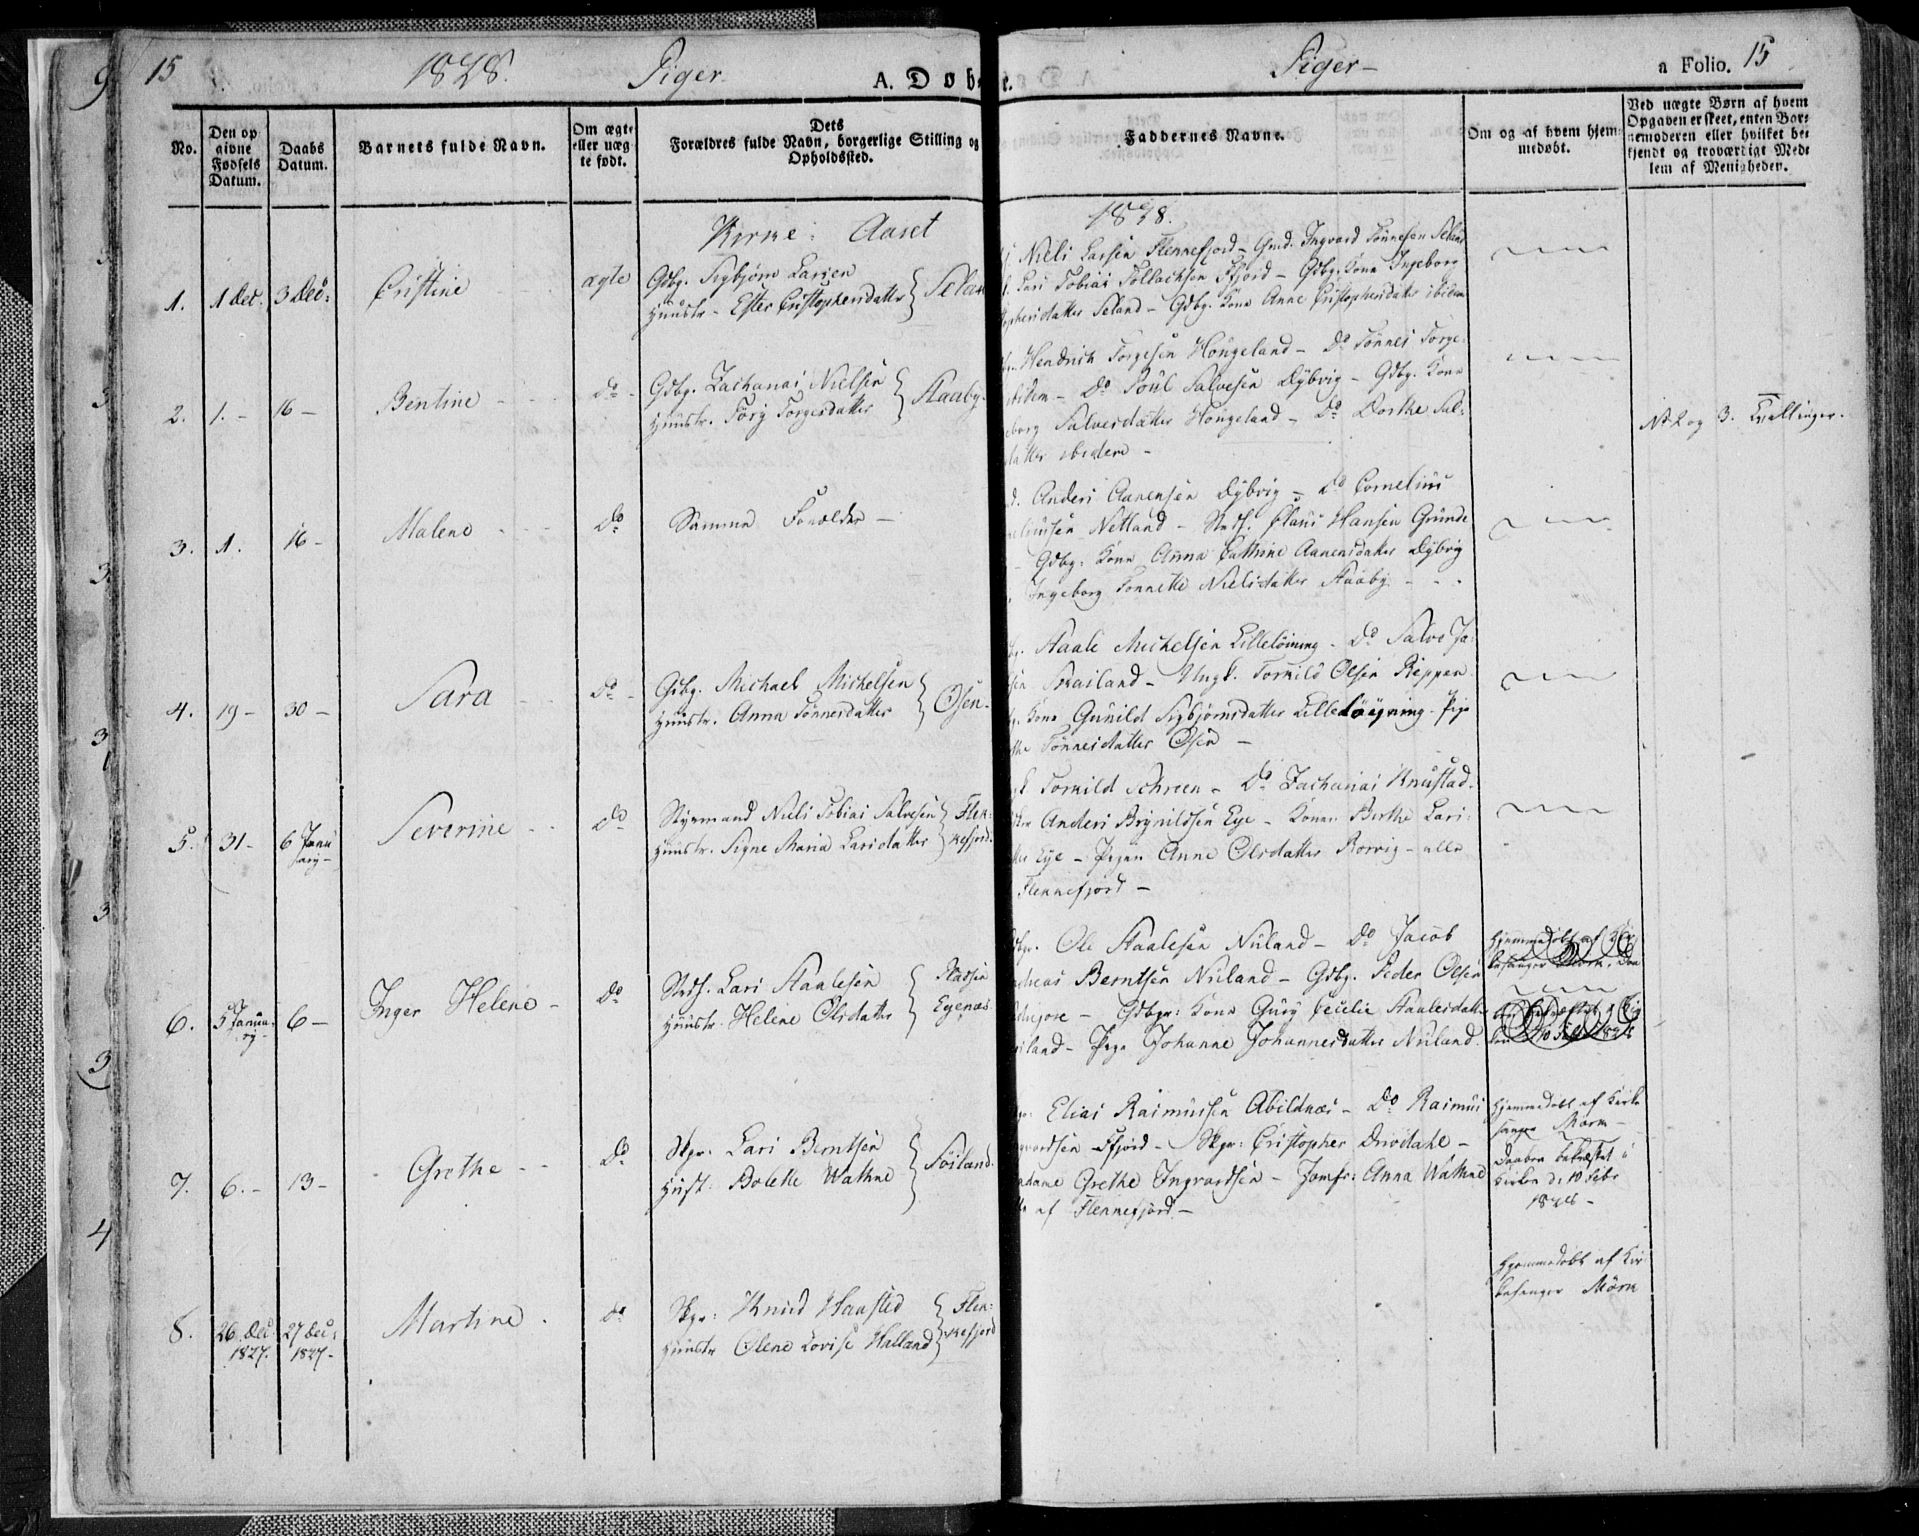 15 1828. Piger A. Døbte. Piger – a Folio. 15
No.
Den op
givne
Fødsels
Datum.
Daabs
Datum.
Barnets fulde Navn.
Om ægte
eller uæg
te født.
Dets
Forældres fulde Navn, borgerlige Stilling og
Opholdssted.
Faddernes Navne.
Om og af hvem hjem
medøbt.
Ved uægte Børn af hvem
Opgaven er skeet, enten Bar-
nemoderen eller hvilket be
kjendt og troværdigt Med
lem af Menigheden.
Kirke: Aaset
1828.
1. 1 Dec. 3 Dec: Cristine ægte
Gdbg. Sigbjørn Larsen
Huustr. Ester Cristophersdatter Seland
Niels Larsen Flennefjord – Gmd. Ingvard Tönnesen Seland
Lars Tobias Tollachsen Ffjord – Gdbg. Kone Ingeborg
tophersdatter Seland – Gdbg. Kone Anne Cristophersdatter ibidem
2. 1. – 16 – Bentine Do
Gdbg. Zacharias Nielsen
Huustr. Törg Torgersdatter Staaby.
Hendrich Torgesen Höngeland – Do Tönnes Torge-
ibidem – Do Poul Salvesen Dybvig – Gdbg. Kone
eborg Salvesdatter Höngeland – Do Dorthe Sal:
datter ibidem –
No 2 og 3. Tvillinger.
3. 1. 16 – Malene Do Samme Forældre –
Anders Aanensen Dybvig – Do Cornelius
neliusen Netland – Claus Hansen Grunde
– Gdbg: Kone Anna Cathrine Aanensdatter Dybvig
Ingeborg Tonnette Nielsdatter Staaby – – .
4. 19 – 30 – Sara Do
Gdbg. Michael Michelsen
Huustr. Anna Tönnesdatter Osen.
Staale Michelsen Lillelöining. Do Salve Ja-
sen Skailand – Ungk. Tormild Olsen Reppen
Kone Gunild Sigbjörnsdatter Lillelöigning. Pige
Tönnesdatter Osen –
5. 31 – 6 Janu
ary – Severine Do
Styrmand Niels Tobias Salvesen
Huustr. Signe Maria Larsdatter Flek-
kefjord.
Tormild Schreen – Do Zacharias Knustad.
Anders Brynildsen Eye – Koner Berthe Lars-
Eye – Pigen Anne Olsdatter Rörvig – alle
Flennefjord –
6. 5 Janua
ry – 6 – Inger Helene – Do
Lars Staalesen
Huustr. Helene Olsdatter Pladsen
Egenæs
Ole Staalesen Nuland – Do Jacob
Andreas Berntsen Nuland – Gdbg. Peder Olsen
– Gdbgr: Kone Gury Cecilie Staalesdatter
– Pige Johanne Johannesdatter Nuland.
Hjemmedøbt af Kir
kesanger Mörn.
7. 6. – 13 – Grethe Do
Skpr: Lars Berntsen
Hust: Bolette Wathne Föiland.
Elias Rasmussen Abildnæs – Do Rasmus
Ingvardsen Ffjord – Skpr: Cristopher Drivdahl –
Madame Grethe Ingvardsen – Jomfr: Anna Wathne
alle af Flennefjord –
Hjemmedøbt af Kirke
sanger Mörn –
Daaben bekræftet i
Kirken d: 10 Febr
1828 –
8. 26 Dec
1827. 27 Dec:
1827. Martine Do
Skpr: Knud Hansted
Huustr Olene Lovise Halland Flek-
kefjord
Hjemmedøbt af Kir
kesanger Mörn